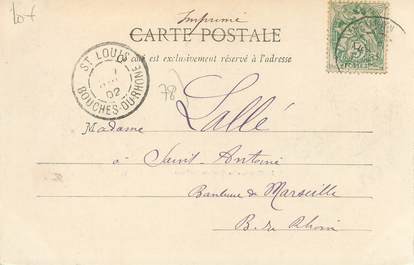 Imprimé
CARTE POSTALE
Ce côté est exclusivement réservé à l'adresse
ST LOUIS
1
02
BOUCHES-DU-RHONE
78)
Madame Lallé
à Saint-Antoine
Banlieue de Marseille
B. du Rhôn